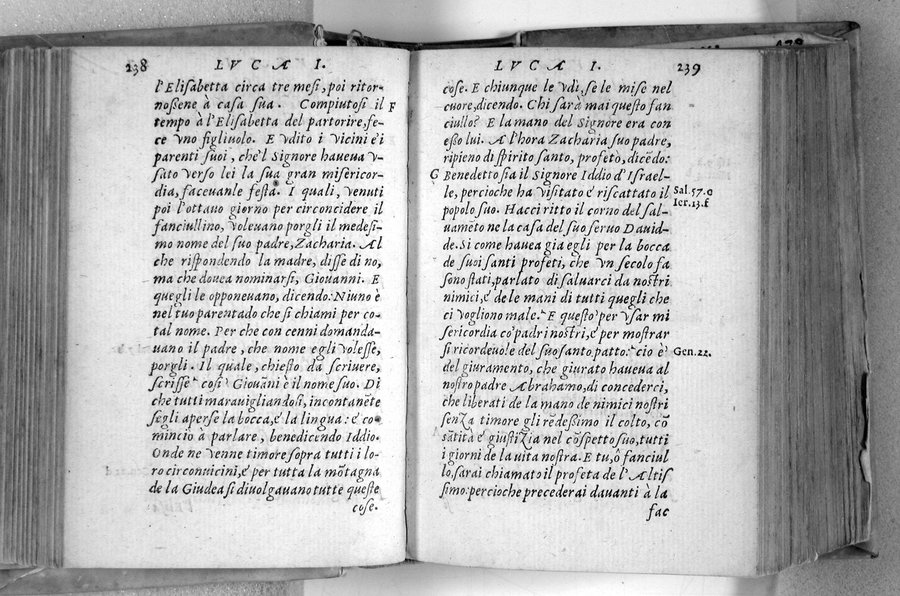 238
LVCA I.
l'Elisabetta circa tre mesi, poi ritor-
nossene à casa sua. Compiutosi il
F
tempo à l'Elisabetta del partorire, fe-
ce vno figliuolo. E vdito i vicini e i
parenti suoi, che'l Signore haueua v-
sato verso lei la sua gran misericor-
dia, faceuanle festa. I quali, venuti
poi l'ottauo giorno per circoncidere il
fanciullino, voleuano porgli il medesi-
mo nome del suo padre, Zacharia. Al
che rispondendo la madre, disse di no,
ma che douea nominarsi, Giouanni. E
quegli le opponeuano, dicendo: Niuno è
nel tuo parentado che si chiami per co-
tal nome. Per che con cenni domanda-
uano il padre, che nome egli volesse,
porgli. Il quale, chiesto da scriuere,
scrisse così Giouāni è il nome suo. Di
che tutti marauigliandosi, incontanēte
segli aperse la bocca, e la lingua: e co-
minciò a parlare, benedicendo Iddio.
Onde ne venne timore sopra tutti i lo-
ro circonuicini, e per tutta la mōtagna
de la Giudea si diuolgauano tutte queste
cose.
LVCA I.
239
cose. E chiunque le vdì, se le mise nel
cuore, dicendo. Chi sarà mai questo fan
ciullo? E la mano del Signore era con
esso lui. A l'hora Zacharia suo padre,
ripieno di spirito santo, profetò, dicēdo:
G
Benedetto sia il Signore Iddio d'Israel-
le, percioche ha visitato e riscattato il
Sal.57.
popolo suo. Hacci ritto il corno del sal-
Ier.13.f
uameto ne la casa del suo seruo Dauid-
de. Si come hauea gia egli per la bocca
de suoi santi profeti, che vn secolo fa
sono stati, parlato di saluarci da nostri
nimici, e de le mani di tutti quegli che
ci vogliono male. E questo per vsar mi
sericordia co' padri nostri, e per mostrar
si ricordeuole del suo santo patto: cio è
Gen.22.
del giuramento, che giurato haueua al
nostro padre Abrahamo, di concederci,
che liberati de la mano de nimici nostri
senza timore gli rēdessimo il colto, cō
sātità e giustizia nel cōspetto suo, tutti
i giorni de la vita nostra. E tu, ô fanciul
lo, sarai chiamato il profeta de l'Altis
simo: percioche precederai dauanti à la
fac